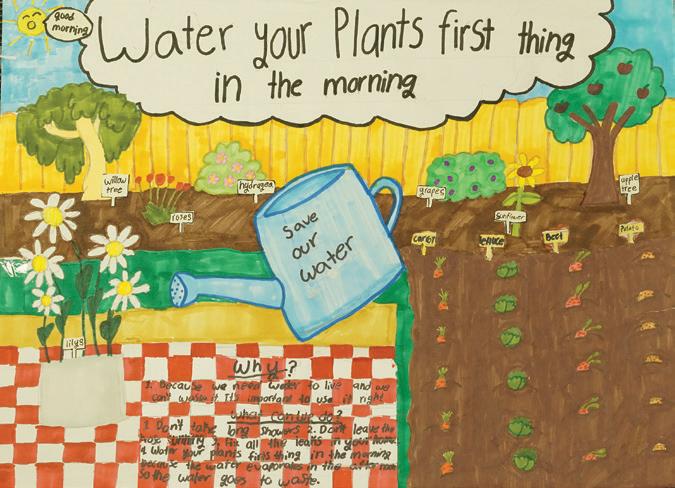 good
morning
Water your Plants first thing
in the morning
willow
tree
roses
hydragea
grapes
sunflower
apple
tree
carrot
lettuce
Beet
Potato
save
our
water
lilys
Why?
1. Because we need water to live and we
can't waste it It's important to use it right
What can we do?
1. Don't take long showers 2. Don't leave the
hose running 3. Fix all the leaks in your home
4 Water your plants first thing in the morning
because the water evaporates in the afternoon
so the water goes to waste.